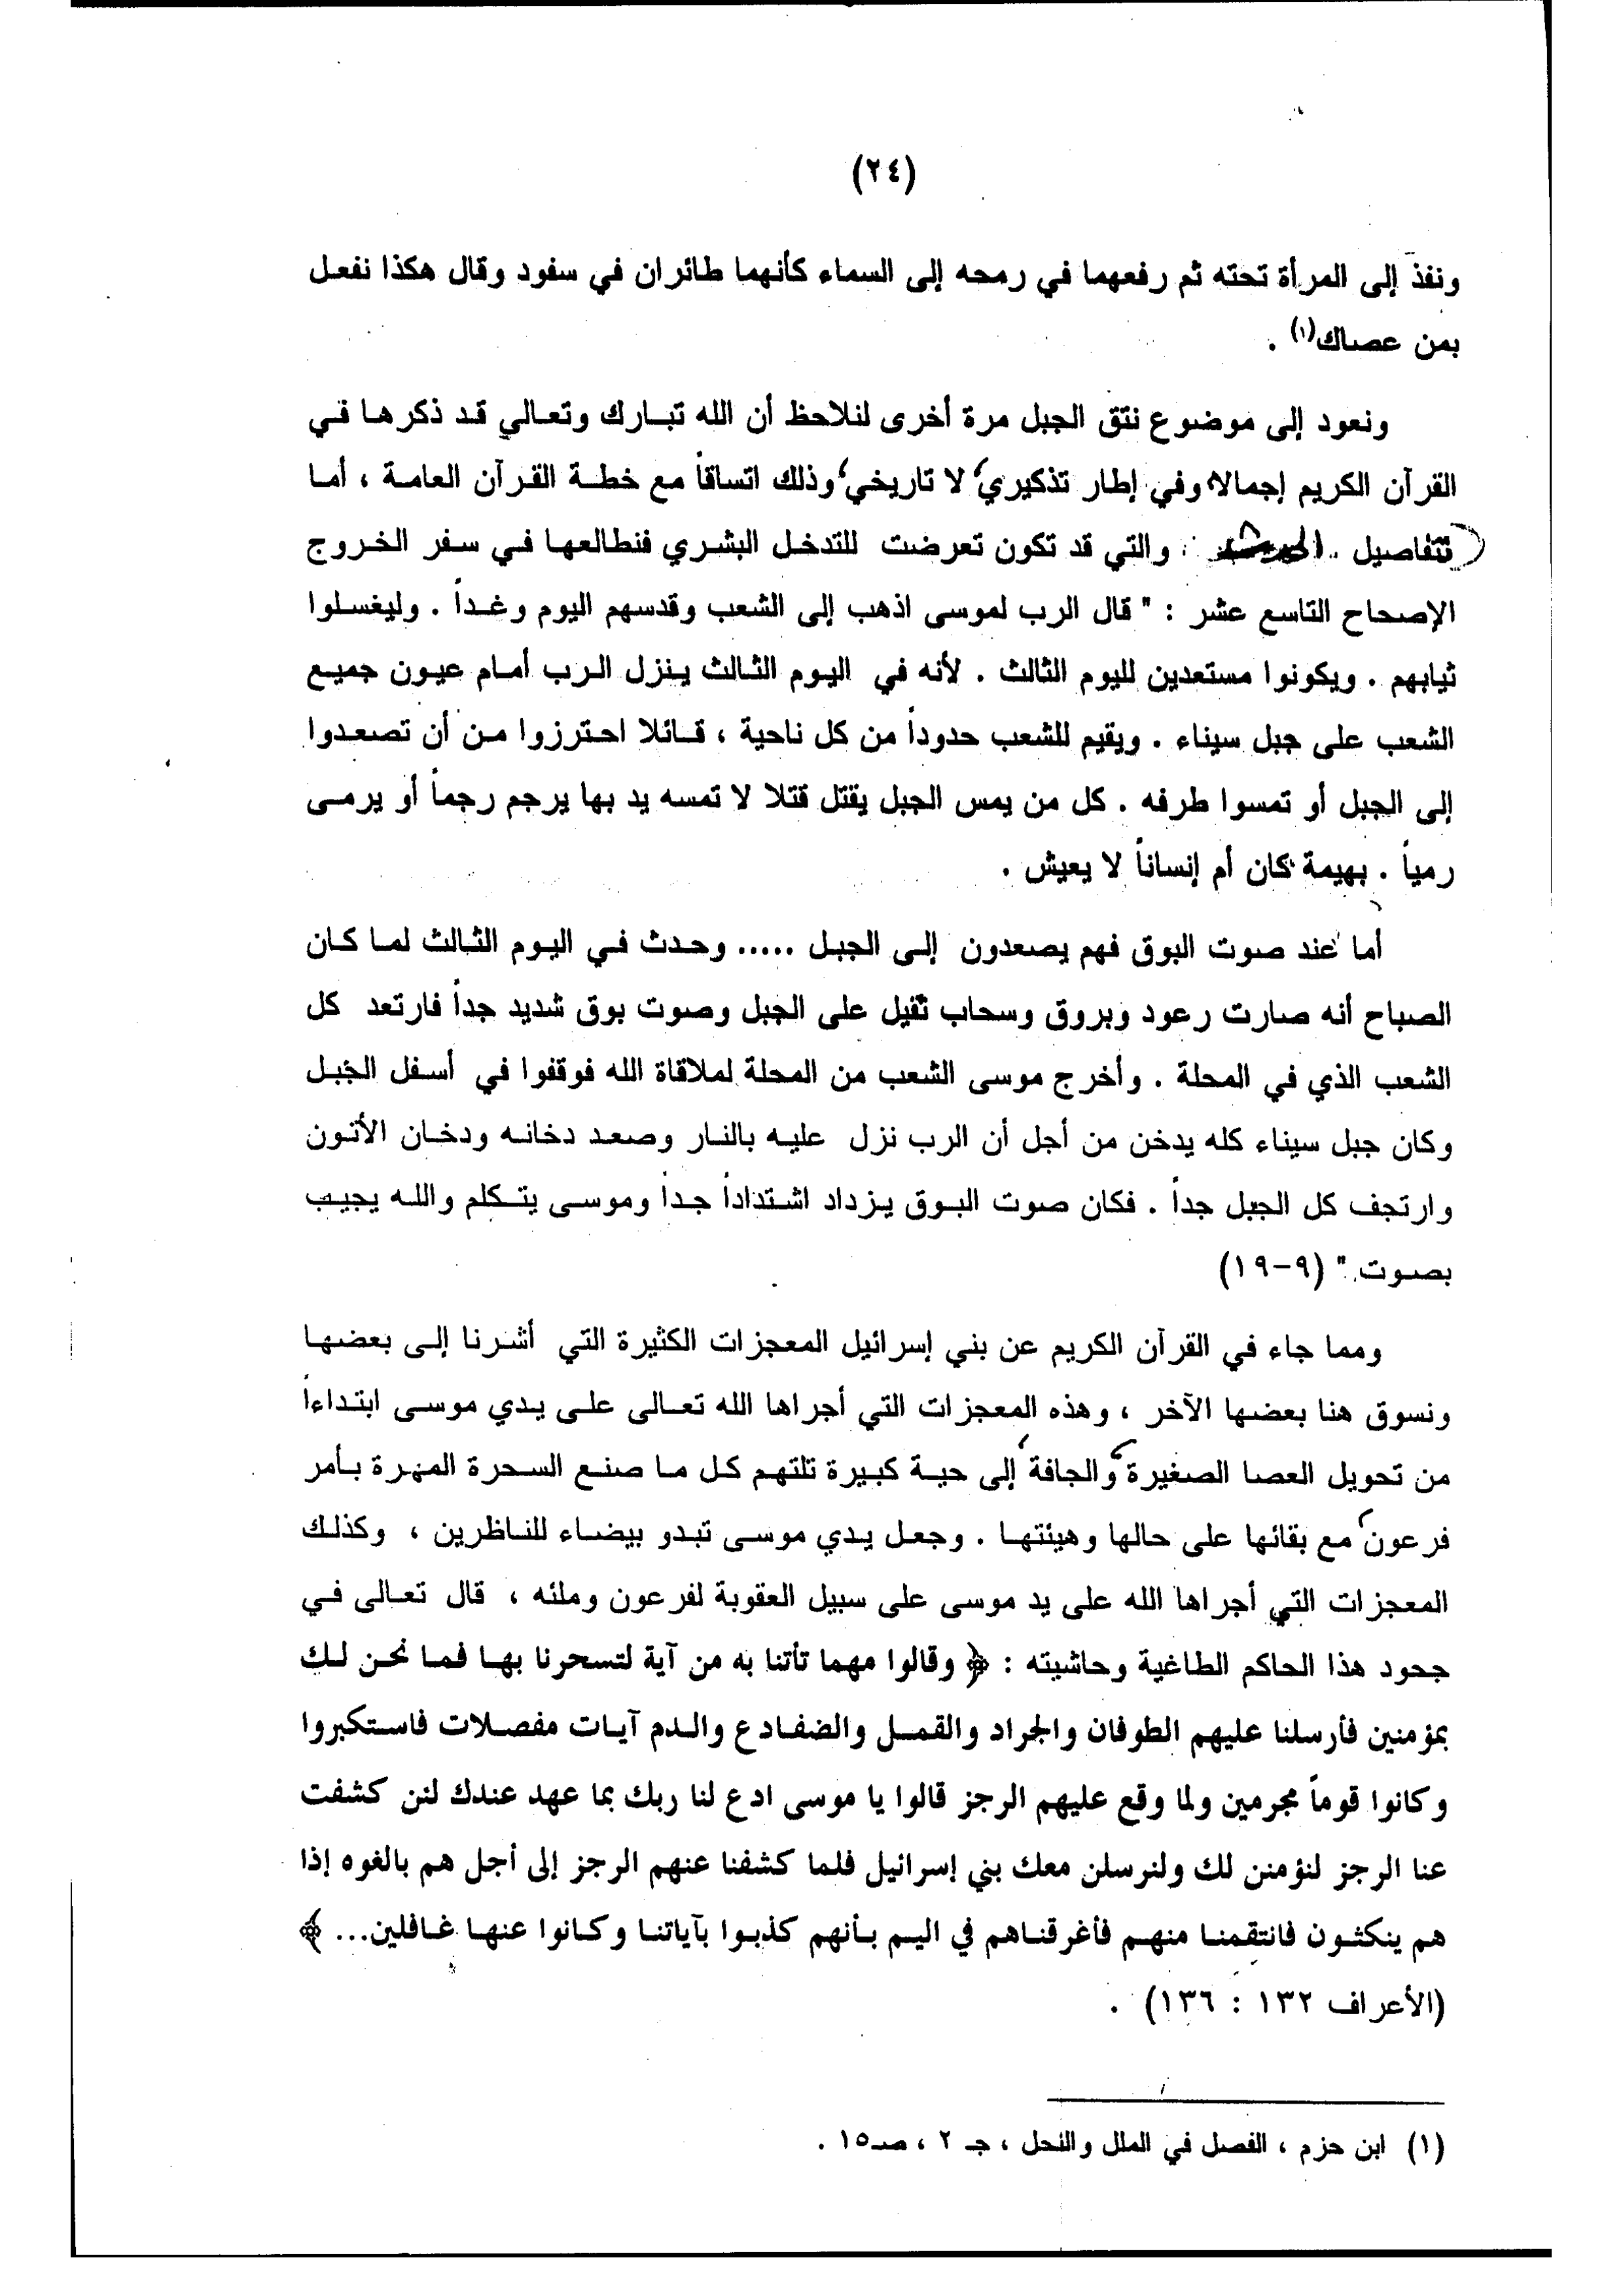 (٢٤)
ونفذ إلى المرأة تحته ثم رفعهما في رمحه إلى السماء كأنهما طائران في سفود وقال هكذا نفعل
بمن عصاك(١) .
ونعود إلى موضوع نتق الجبل مرة أخرى لنلاحظ أن الله تبارك وتعالي قد ذكرها في
القرآن الكريم إجمالا، وفي إطار تذكيري، لا تاريخي، وذلك اتساقاً مع خطة القرآن العامة ، أما
تتفاصيل والتي قد تكون تعرضت للتدخل البشري فنطالعها في سفر الخروج
الإصحاح التاسع عشر : " قال الرب لموسى اذهب إلى الشعب وقدسهم اليوم وغداً . وليغسلوا
ثيابهم . ويكونوا مستعدين لليوم الثالث . لأنه في اليوم الثالث ينزل الرب أمام عيون جميع
الشعب على جبل سيناء . ويقيم للشعب حدوداً من كل ناحية ، قائلا احترزوا من أن تصعدوا
إلى الجبل أو تمسوا طرفه . كل من يمس الجبل يقتل قتلا لا تمسه يد بها يرجم رجماً أو يرمى
رمياً . بهيمة كان أم إنساناً لا يعيش .
أما عند صوت البوق فهم يصعدون إلى الجبل ..... وحدث في اليوم الثالث لما كان
الصباح أنه صارت رعود وبروق وسحاب ثقيل على الجبل وصوت بوق شديد جداً فارتعد كل
الشعب الذي في المحلة . وأخرج موسى الشعب من المحلة لملاقاة الله فوقفوا في أسفل الجبل
وكان جبل سيناء كله يدخن من أجل أن الرب نزل عليه بالنار وصعد دخانه ودخان الأتون
وارتجف كل الجبل جداً . فكان صوت البوق يزداد اشتداداً جداً وموسى يتكلم والله يجيب
بصوت " (٩-١٩)
ومما جاء في القرآن الكريم عن بني إسرائيل المعجزات الكثيرة التي أشرنا إلى بعضها
ونسوق هنا بعضها الآخر ، وهذه المعجزات التي أجراها الله تعالى على يدي موسى ابتداءاً
من تحويل العصا الصغيرة والجافة إلى حية كبيرة تلتهم كل ما صنع السحرة المهرة بأمر
فرعون مع بقائها على حالها وهيئتها . وجعل يدي موسى تبدو بيضاء للناظرين ، وكذلك
المعجزات التي أجراها الله على يد موسى على سبيل العقوبة لفرعون وملئه ، قال تعالى في
جحود هذا الحاكم الطاغية وحاشيته : ﴿ وقالوا مهما تأتنا به من آية لتسحرنا بها فما نحن لك
بمؤمنين فأرسلنا عليهم الطوفان والجراد والقمل والضفادع والدم آيات مفصلات فاستكبروا
وكانوا قوماً مجرمين ولما وقع عليهم الرجز قالوا يا موسى ادع لنا ربك بما عهد عندك لئن كشفت
عنا الرجز لنؤمنن لك ولنرسلن معك بني إسرائيل فلما كشفنا عنهم الرجز إلى أجل هم بالغوه إذا
هم ينكثون فانتقمنا منهم فأغرقناهم في اليم بأنهم كذبوا بآياتنا وكانوا عنها غافلين... ﴾
(الأعراف ١٣٢ : ١٣٦) .
(١) ابن حزم ، الفصل في الملل والنحل ، جـ ٢ ، صـ١٥ .